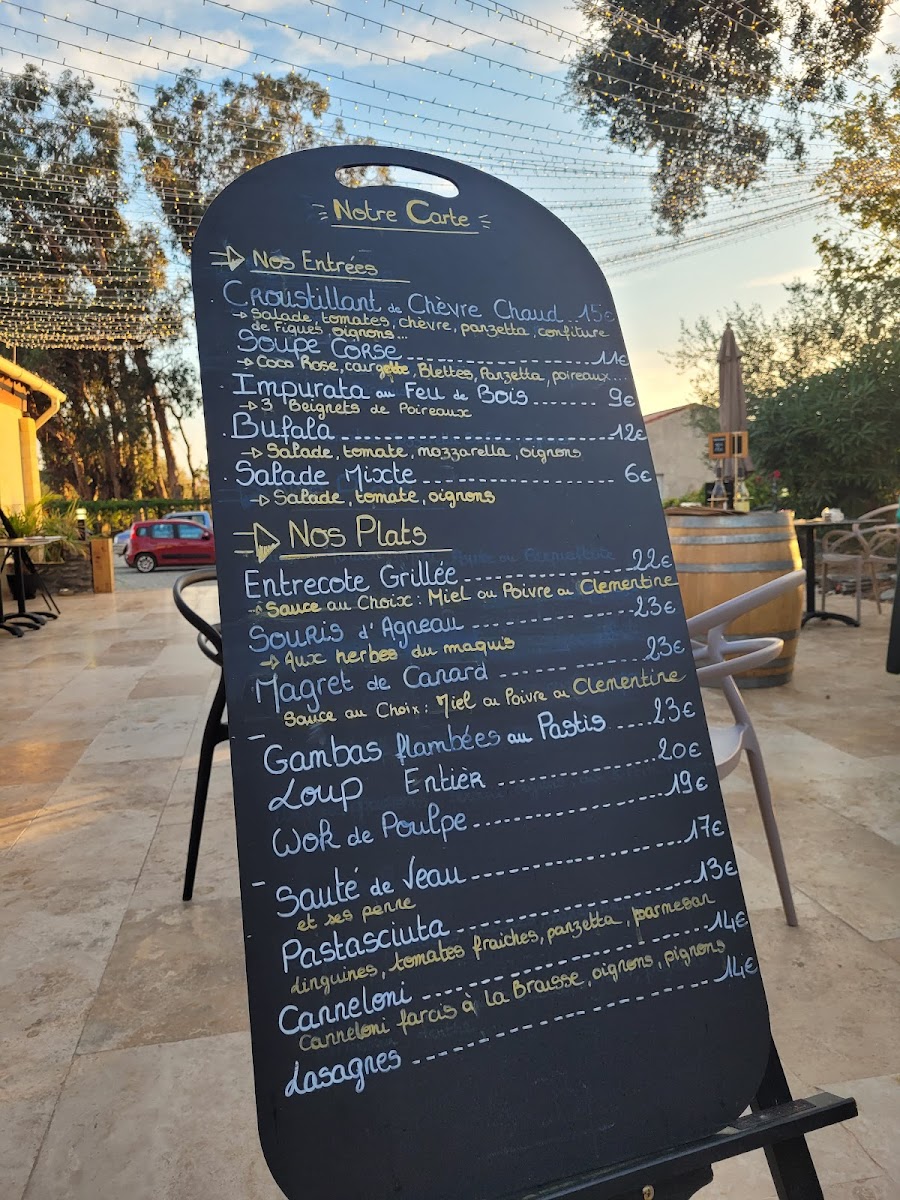 Notre Carte
Nos Entrées
Croustillant de Chèvre Chaud .. 15€
Salade, tomates, chèvre, panzetta, confiture
de Figues, oignons...
Soupe Corse 11€
Coco Rose, courgette, Blettes, Panzetta, poireaux...
Impurata au Feu de Bois 9€
3 Beignets de Poireaux
Bufala 12€
Salade, tomate, mozzarella, oignons
Salade Mixte 6€
Salade, tomate, oignons
Nos Plats
Entrecote Grillée 22€
Sauce au Choix : Miel ou Poivre ou Clementine
Souris d'Agneau 23€
Aux herbes du maquis
Magret de Canard 23€
Sauce au Choix : Miel ou Poivre ou Clementine
Gambas flambées au Pastis 23€
Loup Entièr 20€
Wok de Poulpe 19€
Sauté de Veau 17€
et ses penne
Pastasciuta 13€
Linguines, tomates fraiches, panzetta, parmesan
Canneloni 14€
Canneloni farcis à la Braisse, oignons, pignons
Lasagnes 14€